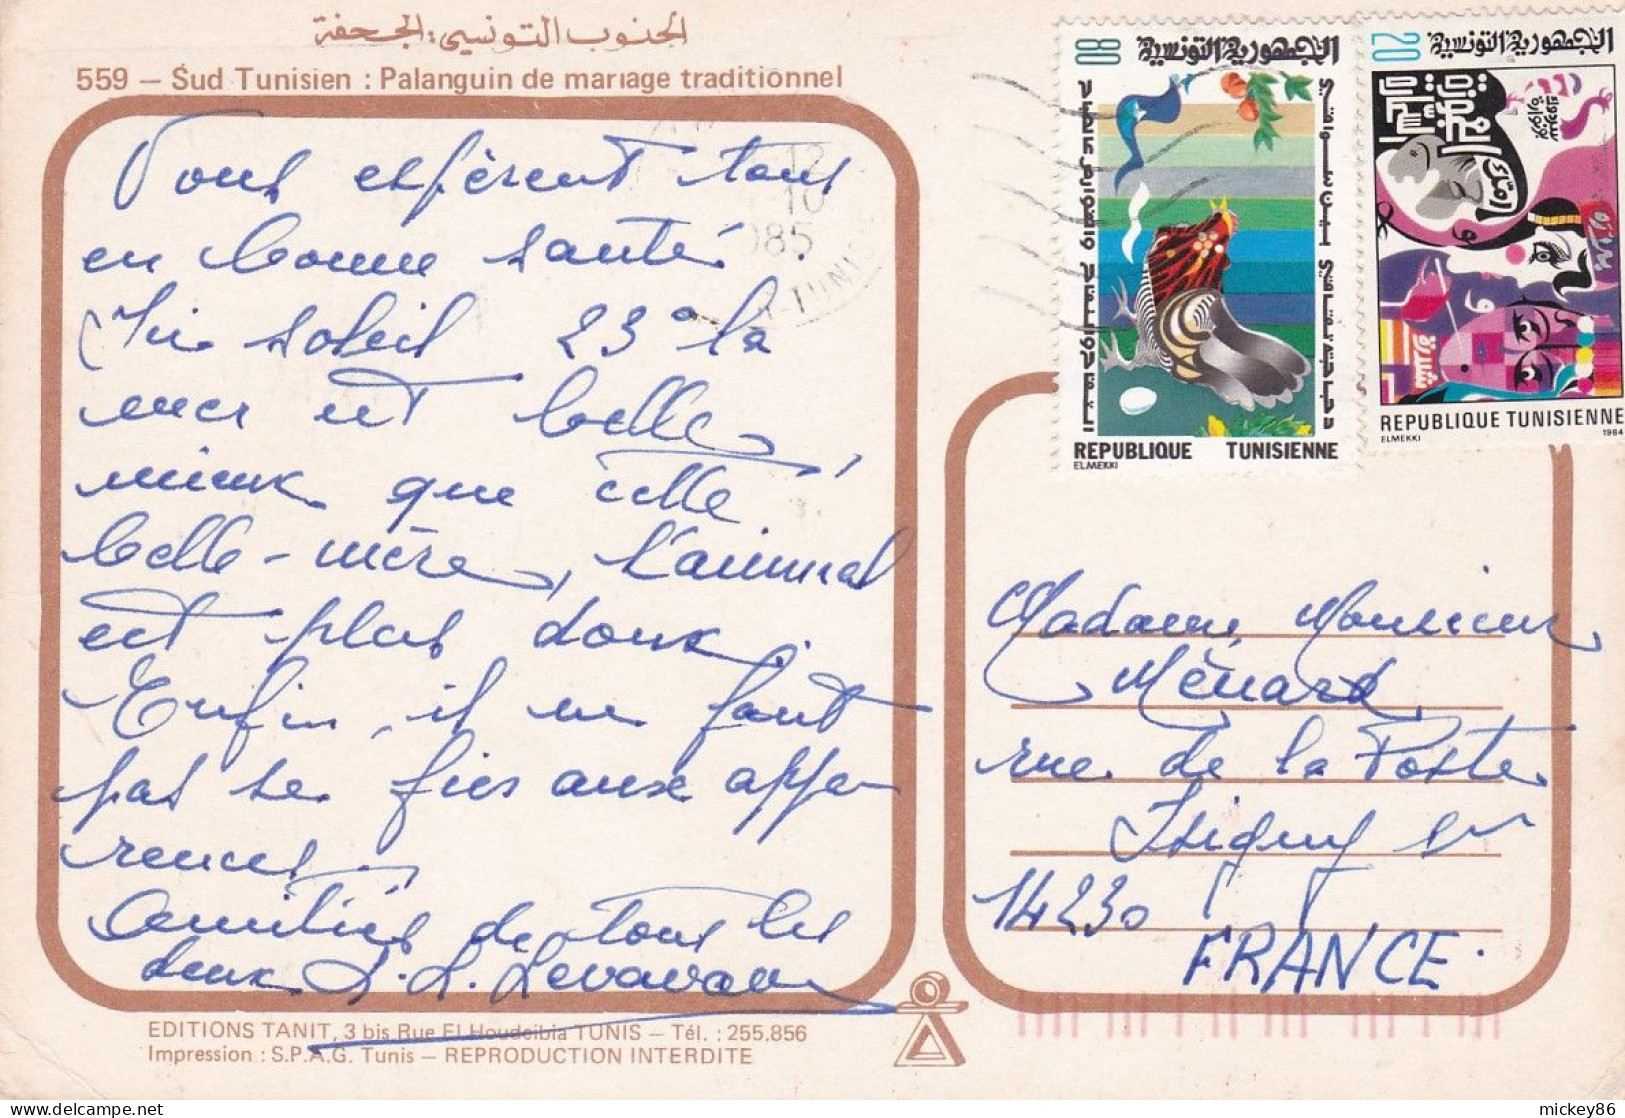 الجنوب التونسي : الجحفة
559 — Sud Tunisien : Palanguin de mariage traditionnel
Vous espèrent tous
en bonne santé.
Ici soleil 23° la
mer est belle,
mieux que cette
belle-mère, l'animal
est plus doux.
Enfin, il ne faut
pas se fier aux appa
rences.
Amitiés de tous les
deux
12
10
985
80
الجمهورية التونسية
REPUBLIQUE TUNISIENNE
ELMEKKI
20
الجمهورية التونسية
REPUBLIQUE TUNISIENNE
ELMEKKI 1984
Madame, Monsieur
Ménard
rue de la Poste
Isigny sur
14230
FRANCE.
EDITIONS TANIT, 3 bis Rue El Houdeibia TUNIS — Tél. : 255.856
Impression : S.P.A.G. Tunis — REPRODUCTION INTERDITE
mickey86